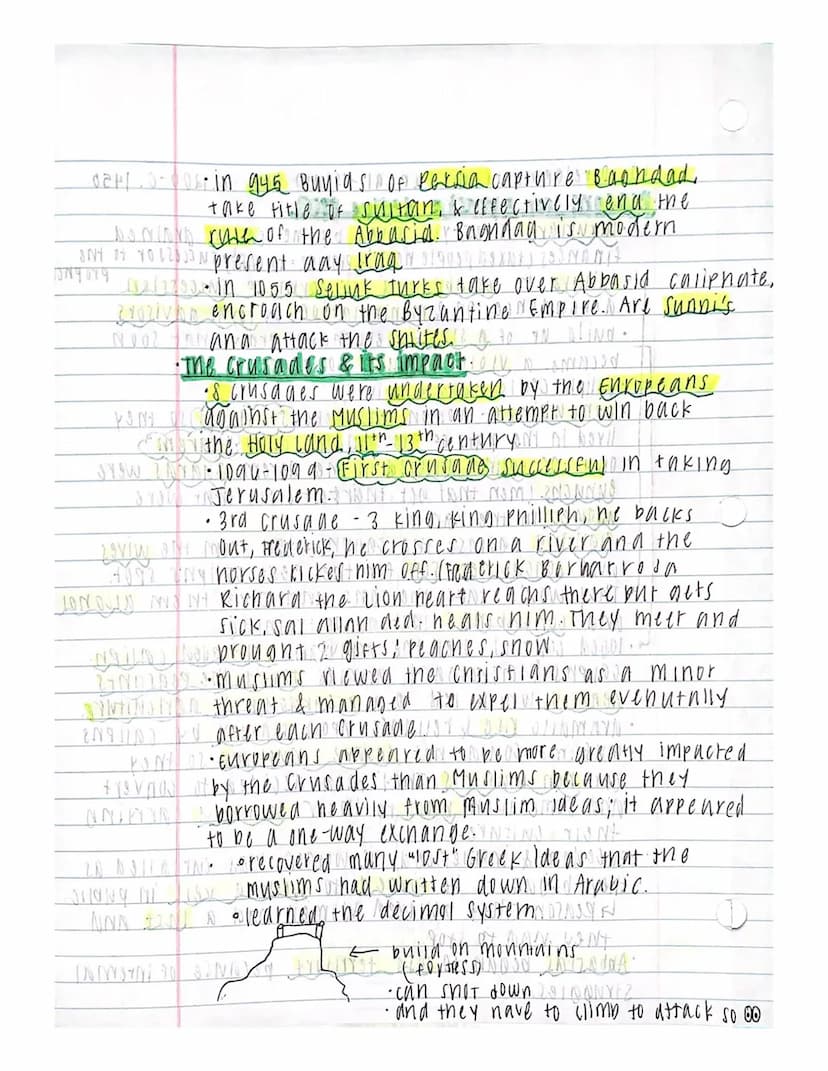 · in 945 Buyids of Persia capture Baghdad,
take title of sultan, & effectively end the
rule of the Abbasid. Baghdad is modern
present day Iraq
· In 1055 Seljuk Turks take over Abbasid caliphate,
encroach on the Byzantine Empire. Are Sunni's
and attack the shiites.
· The Crusades & its impact.
· 8 crusades were undertaken by the Europeans
against the Muslims in an attempt to win back
the Holy Land, 11th - 13th century
· 1096-1099 - First crusade successful in taking
Jerusalem.
· 3rd crusade - 3 king, king Philliph, he backs
out, Frederick, he crosses on a river and the
horses kickes him off. (Frederick Barbarrosa
Richard the Lion heart reachs there but gets
sick, sal allah ded. heals him. They meet and
brought 2 gifts; peaches, snow
· Muslims viewed the Christians as a minor
threat & managed to expel them evenutally
after each Crusade.
· Europeans appeared to be more greatly impacted
by the Crusades than Muslims because they
borrowed heavily from Muslim ideas; it appeared
to be a one-way exchange.
· recovered many "lost" Greek Ideas that the
muslims had written down in Arabic.
· learned the decimal system
← build on mountains
(foytess)
· can shot down
· and they have to climb to attack so